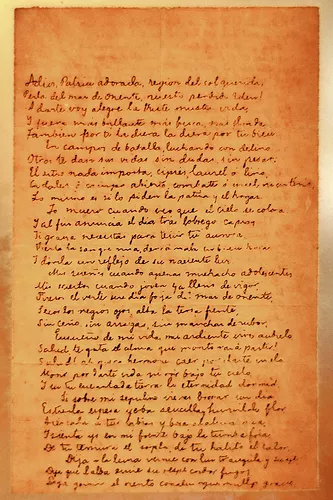 Adios, Patria adorada, region del sol querida,
Perla del mar de oriente, nuestro perdido Eden!
A darte voy alegre la triste mustia vida,
Y fuera más brillante más fresca, más florida
Tambien por tí la diera la diera por tu bien
En campos de batalla, luchando con delirio
Otros te dan sus vidas sin dudas, sin pesar,
El sitio nada importa, cipres laurel o lirio,
Cadalso ó campo abierto, combate ó cruel martirio
Lo mismo es si lo piden la patria y el hogar.
Yo muero cuando veo que el cielo se colora
Y al fin anuncia el día tras lóbrego capuz
Si grana necesitas para teñir tu aurora
Vierte la sangre mia, derrámala en buen hora
Y dórela un reflejo de su naciente luz
Mis sueños cuando apenas muchacho adolescente,
Mis sueños cuando joven ya lleno de vigor,
Fueron el verte un día joya del mar de oriente,
Secos los negros ojos, alta la tersa frente,
Sin ceño, sin arrugas, sin manchas de rubor.
Ensueño de mi vida, mi ardiente vivo anhelo
Salud te grita el alma que pronto va á partir!
Salud! ah que es hermoso caer por darte vuelo
Morir por darte vida morir bajo tu cielo
Y en tu encantada tierra la eternidad dormir
Si sobre mi sepulcro vieres brotar un dia
Entre la espesa yerba sencilla, humilde flor
Acércala a tus labios y
Y sienta yo en mi frente bajo la tumba fria
De tu ternura el soplo, de tu hálito el calor
Deja a la luna verme con luz tranquila y suave
Deja que el alba envíe su resplandor fugaz
Deja gemir el viento con su murmullo grave